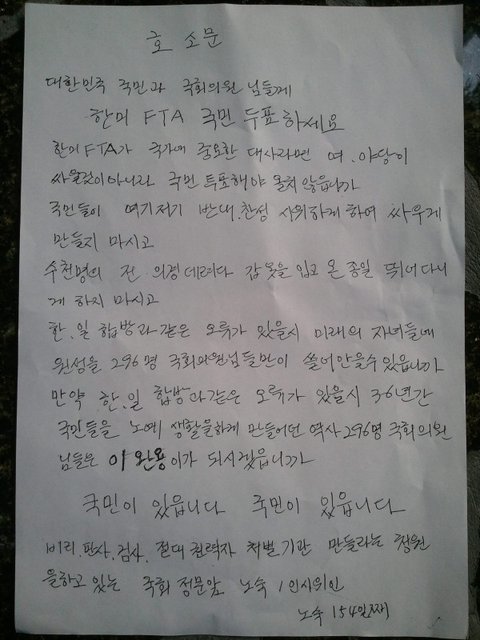 호 소문
대한민국 국민과 국회의원님들께
한미 FTA 국민 투표하세요
한미FTA가 국가에 중요한 대사라면 여.야당이
싸울것이아니라 국민 투표해야 옳치 않읍니까
국민들이 여기저기 반대.찬성 시위하게 하여 싸우게
만들지 마시고
수천명의 전 의경 데려다 갑옷을 입고 온종일 뛰어다니
게 하지 마시고
한.일 합방과같은 오류가 있을시 미래의 자녀들에
원성을 296명 국회의원님들만이 쓸어안을수있읍니까
만약 한.일 합방과같은 오류가 있을시 36년간
국민들을 노예 생활을하게 만들어던 역사 296명 국회의원
님들은 이완용이가 되시겠읍니까
국민이 있읍니다 국민이 있읍니다
비리.판사.검사. 절대 권력자 처벌기관 만들라는 청원
을하고 있는 국회 정문앞 노숙 1인시위인
노숙 154일째